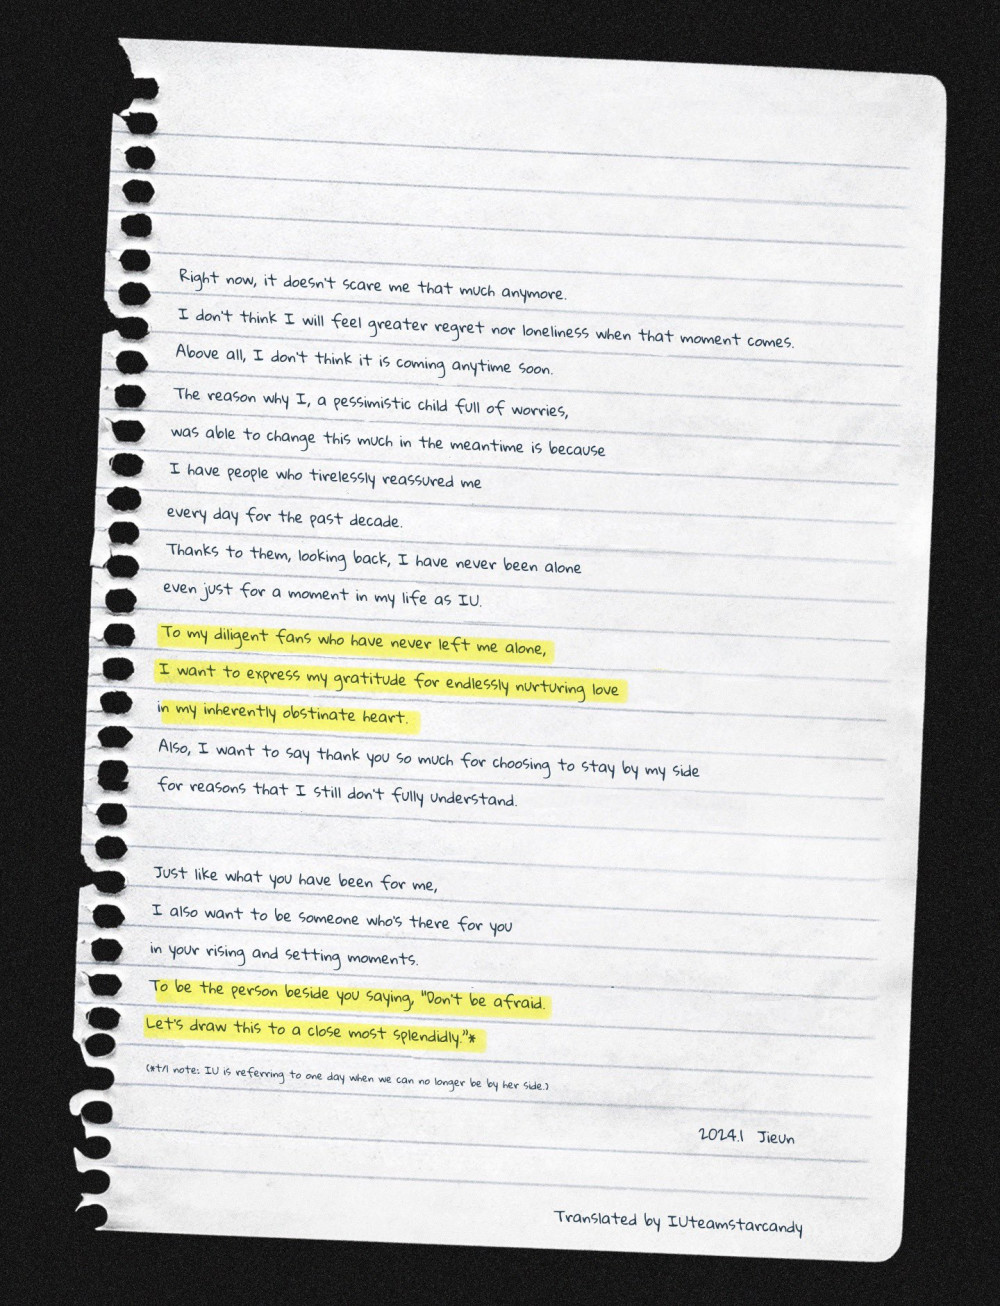 Right now, it doesn't scare me that much anymore.
I don't think I will feel greater regret nor loneliness when that moment comes.
Above all, I don't think it is coming anytime soon.
The reason why I, a pessimistic child full of worries,
was able to change this much in the meantime is because
I have people who tirelessly reassured me
every day for the past decade.
Thanks to them, looking back, I have never been alone
even just for a moment in my life as IU.
To my diligent fans who have never left me alone,
I want to express my gratitude for endlessly nurturing love
in my inherently obstinate heart.
Also, I want to say thank you so much for choosing to stay by my side
for reasons that I still don't fully understand.
Just like what you have been for me,
I also want to be someone who's there for you
in your rising and setting moments.
To be the person beside you saying, "Don't be afraid.
Let's draw this to a close most splendidly."*
(*t/l note: IU is referring to one day when we can no longer be by her side.)
2024.1 Jieun
Translated by IUteamstarcandy